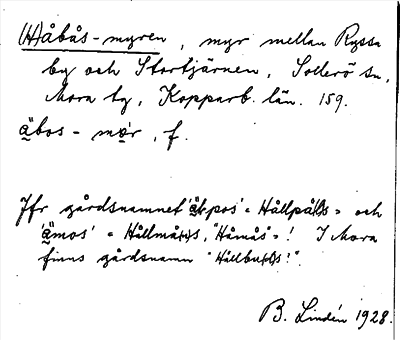 (H)åbås-myren, myr mellan Ryssa
by och Stortjärnen, Sollerö sn,
Mora tg, Kopparb. län. 159.
äbos-mør, f.
Jfr gårdsnamnet 'äkpos' = Hållpå(l)s = och
'ämos' = Hållmå(n)s, "Håmås"=! I Mora
finns gårdsnamn "Hållbu(s)!".
B. Lindén 1928.